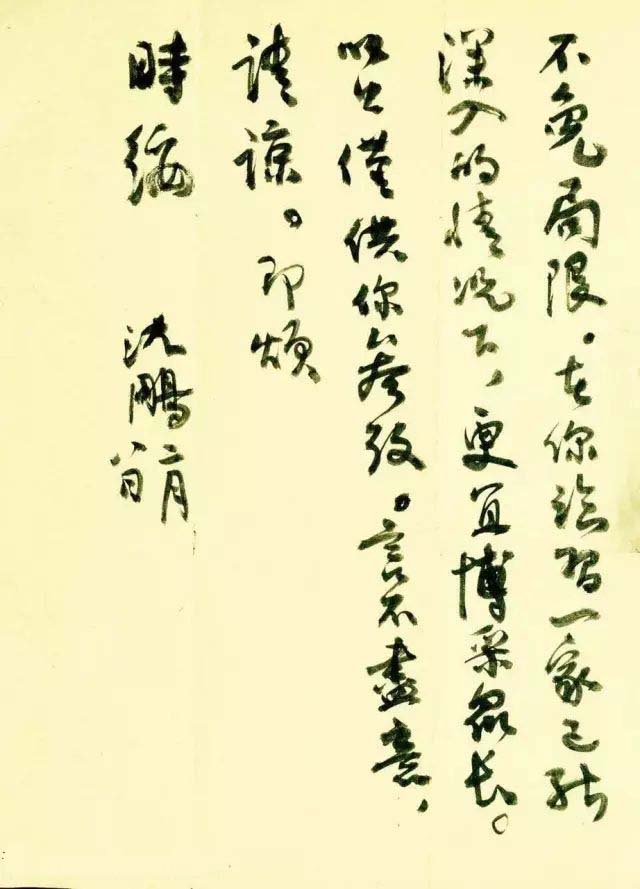 不免局限。在你临习一家已能
深入的情况下，更宜博采众长。
以上仅供你参考。言不尽意，
请谅。即颂
时绥
沈鹏 二月
八日